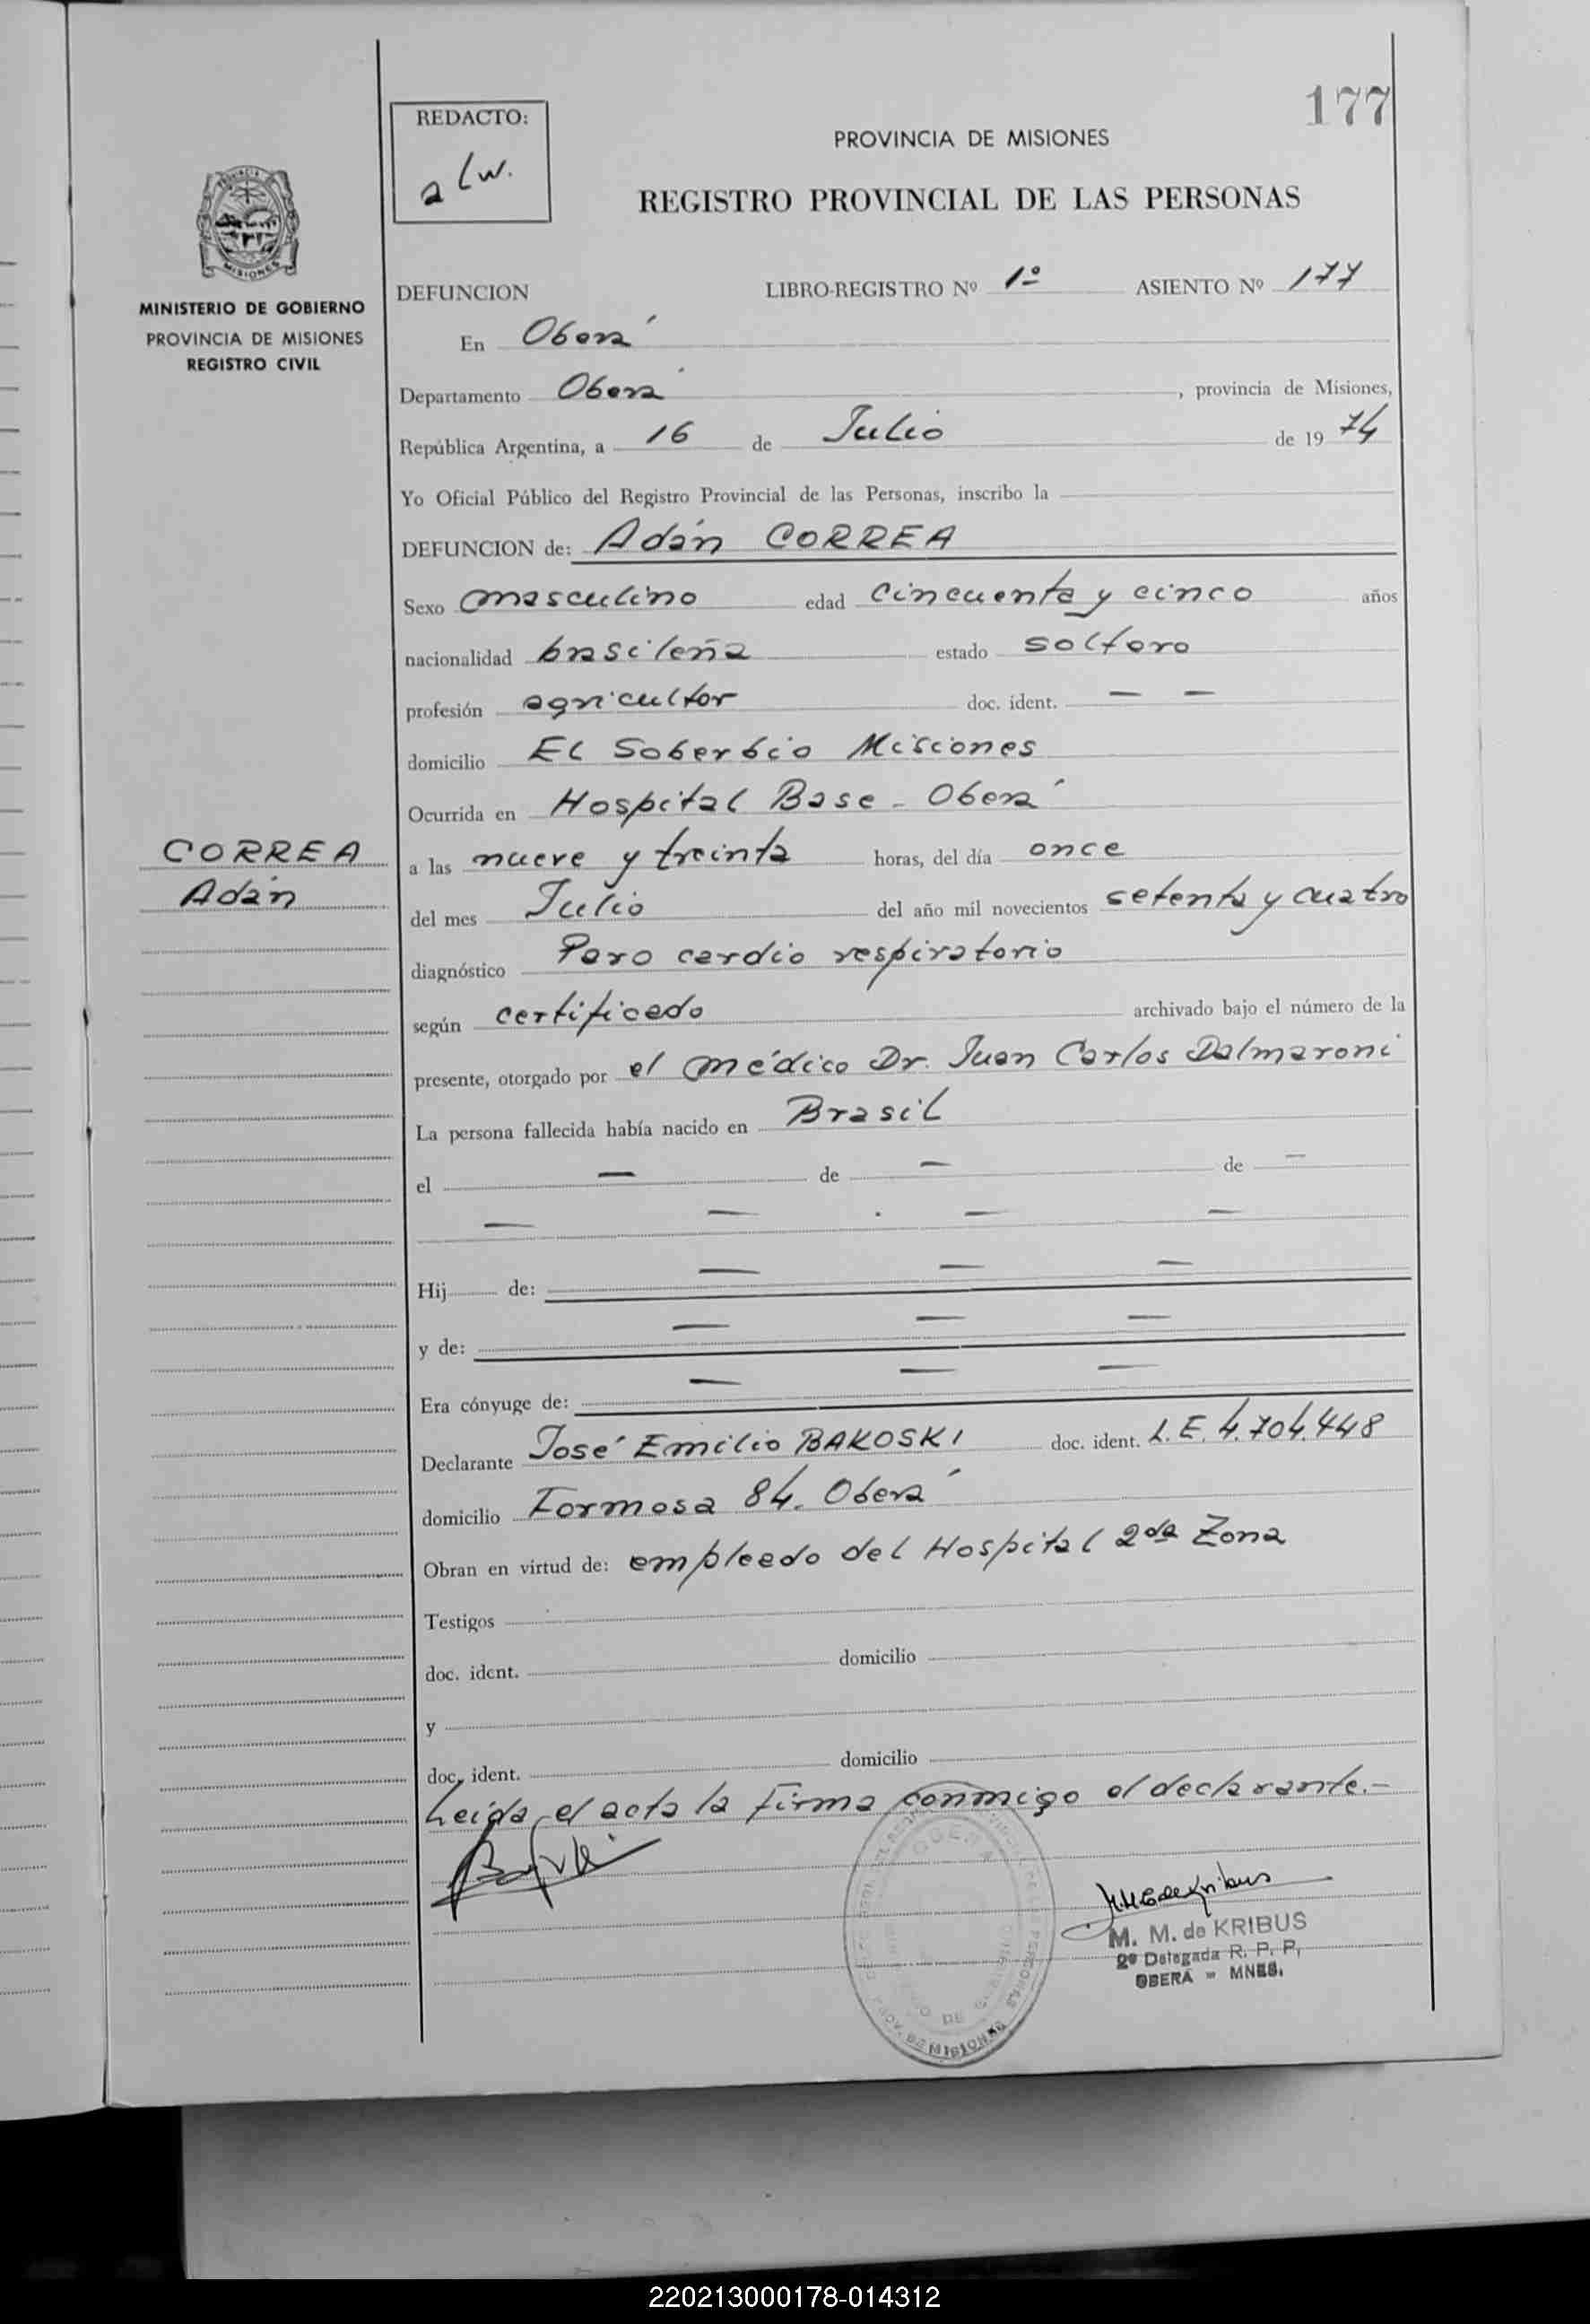 177
REDACTO:
a lw.
PROVINCIA DE MISIONES
REGISTRO PROVINCIAL DE LAS PERSONAS
MISIONES
MINISTERIO DE GOBIERNO
PROVINCIA DE MISIONES
REGISTRO CIVIL
DEFUNCION LIBRO-REGISTRO Nº 1º ASIENTO Nº 177
En Oberá
Departamento Oberá, provincia de Misiones,
República Argentina, a 16 de Julio de 1974
Yo Oficial Público del Registro Provincial de las Personas, inscribo la
DEFUNCION de: Adán CORREA
Sexo masculino edad cincuenta y cinco años
nacionalidad brasileña estado soltero
profesión agricultor doc. ident. — —
domicilio El Soberbio Misiones
Ocurrida en Hospital Base - Oberá
CORREA
Adán
a las nueve y treinta horas, del día once
del mes Julio del año mil novecientos setenta y cuatro
diagnóstico Paro cardio respiratorio
según certificado archivado bajo el número de la
presente, otorgado por el médico Dr. Juan Carlos Dalmaroni
La persona fallecida había nacido en Brasil
el — de — de —
— — — —
Hij de: — — —
y de: — — —
Era cónyuge de: — — —
Declarante José Emilio BAKOSKI doc. ident. L.E. 4.704.448
domicilio Formosa 84. Oberá
Obran en virtud de: empleado del Hospital 2da Zona
Testigos
doc. ident. domicilio
y
doc. ident. domicilio
Leída el acta la firma conmigo el declarante.-
M. M. de KRIBUS
2ª Delegada R. P. P.
OBERÁ - MNES.
220213000178-014312